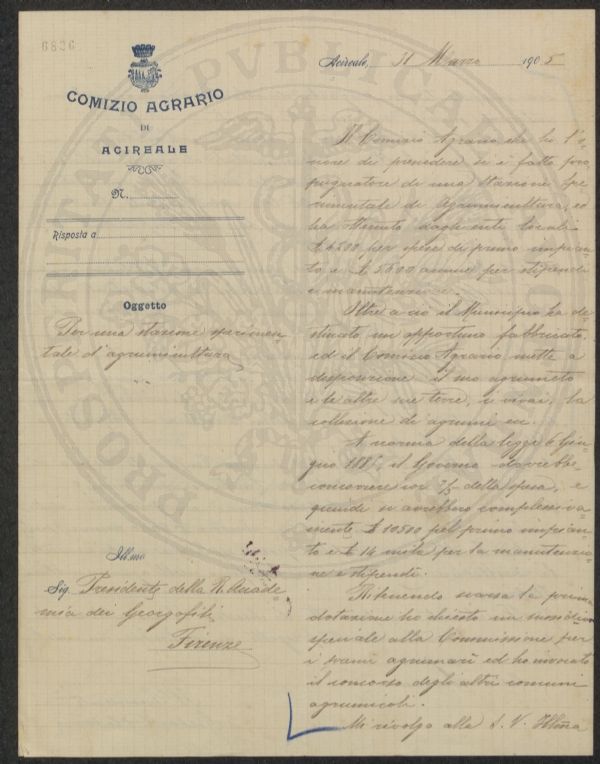 6826
COMIZIO AGRARIO
DI
ACIREALE
N.
Risposta a
Oggetto
Per una stazione sperimen-
tale d'agrumicultura
Ill.mo
Sig. Presidente della R. Accade
mia dei Georgofili
Firenze
Acireale, 31 Marzo 1905
Il Comizio Agrario che ho l'o-
nore di presiedere si è fatto pro
pugnatore di una Stazione Spe
rimentale di Agrumicultura, ed
ha ottenuto dagli enti locali
£ 4200 per spese di primo impian
to e £ 5600 annue per stipendi
e manutenzione.
Oltre a ciò il Municipio ha de
stinato un opportuno fabbricato,
ed il Comizio Agrario mette a
disposizione il suo agrumeto
e le altre sue terre, i vivai, la
collezione di agrumi ecc.
A norma della legge 6 Giu
gno 188 il Governo dovrebbe
concorrere coi 3/5 della spesa, e
quindi si avrebbero complessiva
mente £ 10500 pel primo impian
to e £ 14 mila per la manutenzio
ne e stipendi.
Ritenendo scarsa la prima
dotazione ho chiesto un sussidio
speciale alla Commissione per
i agrumari ed ho invocato
il concorso degli altri comuni
agrumicoli.
Mi rivolgo alla S. V. Ill.ma
PROSPERITATI PUBLICAE